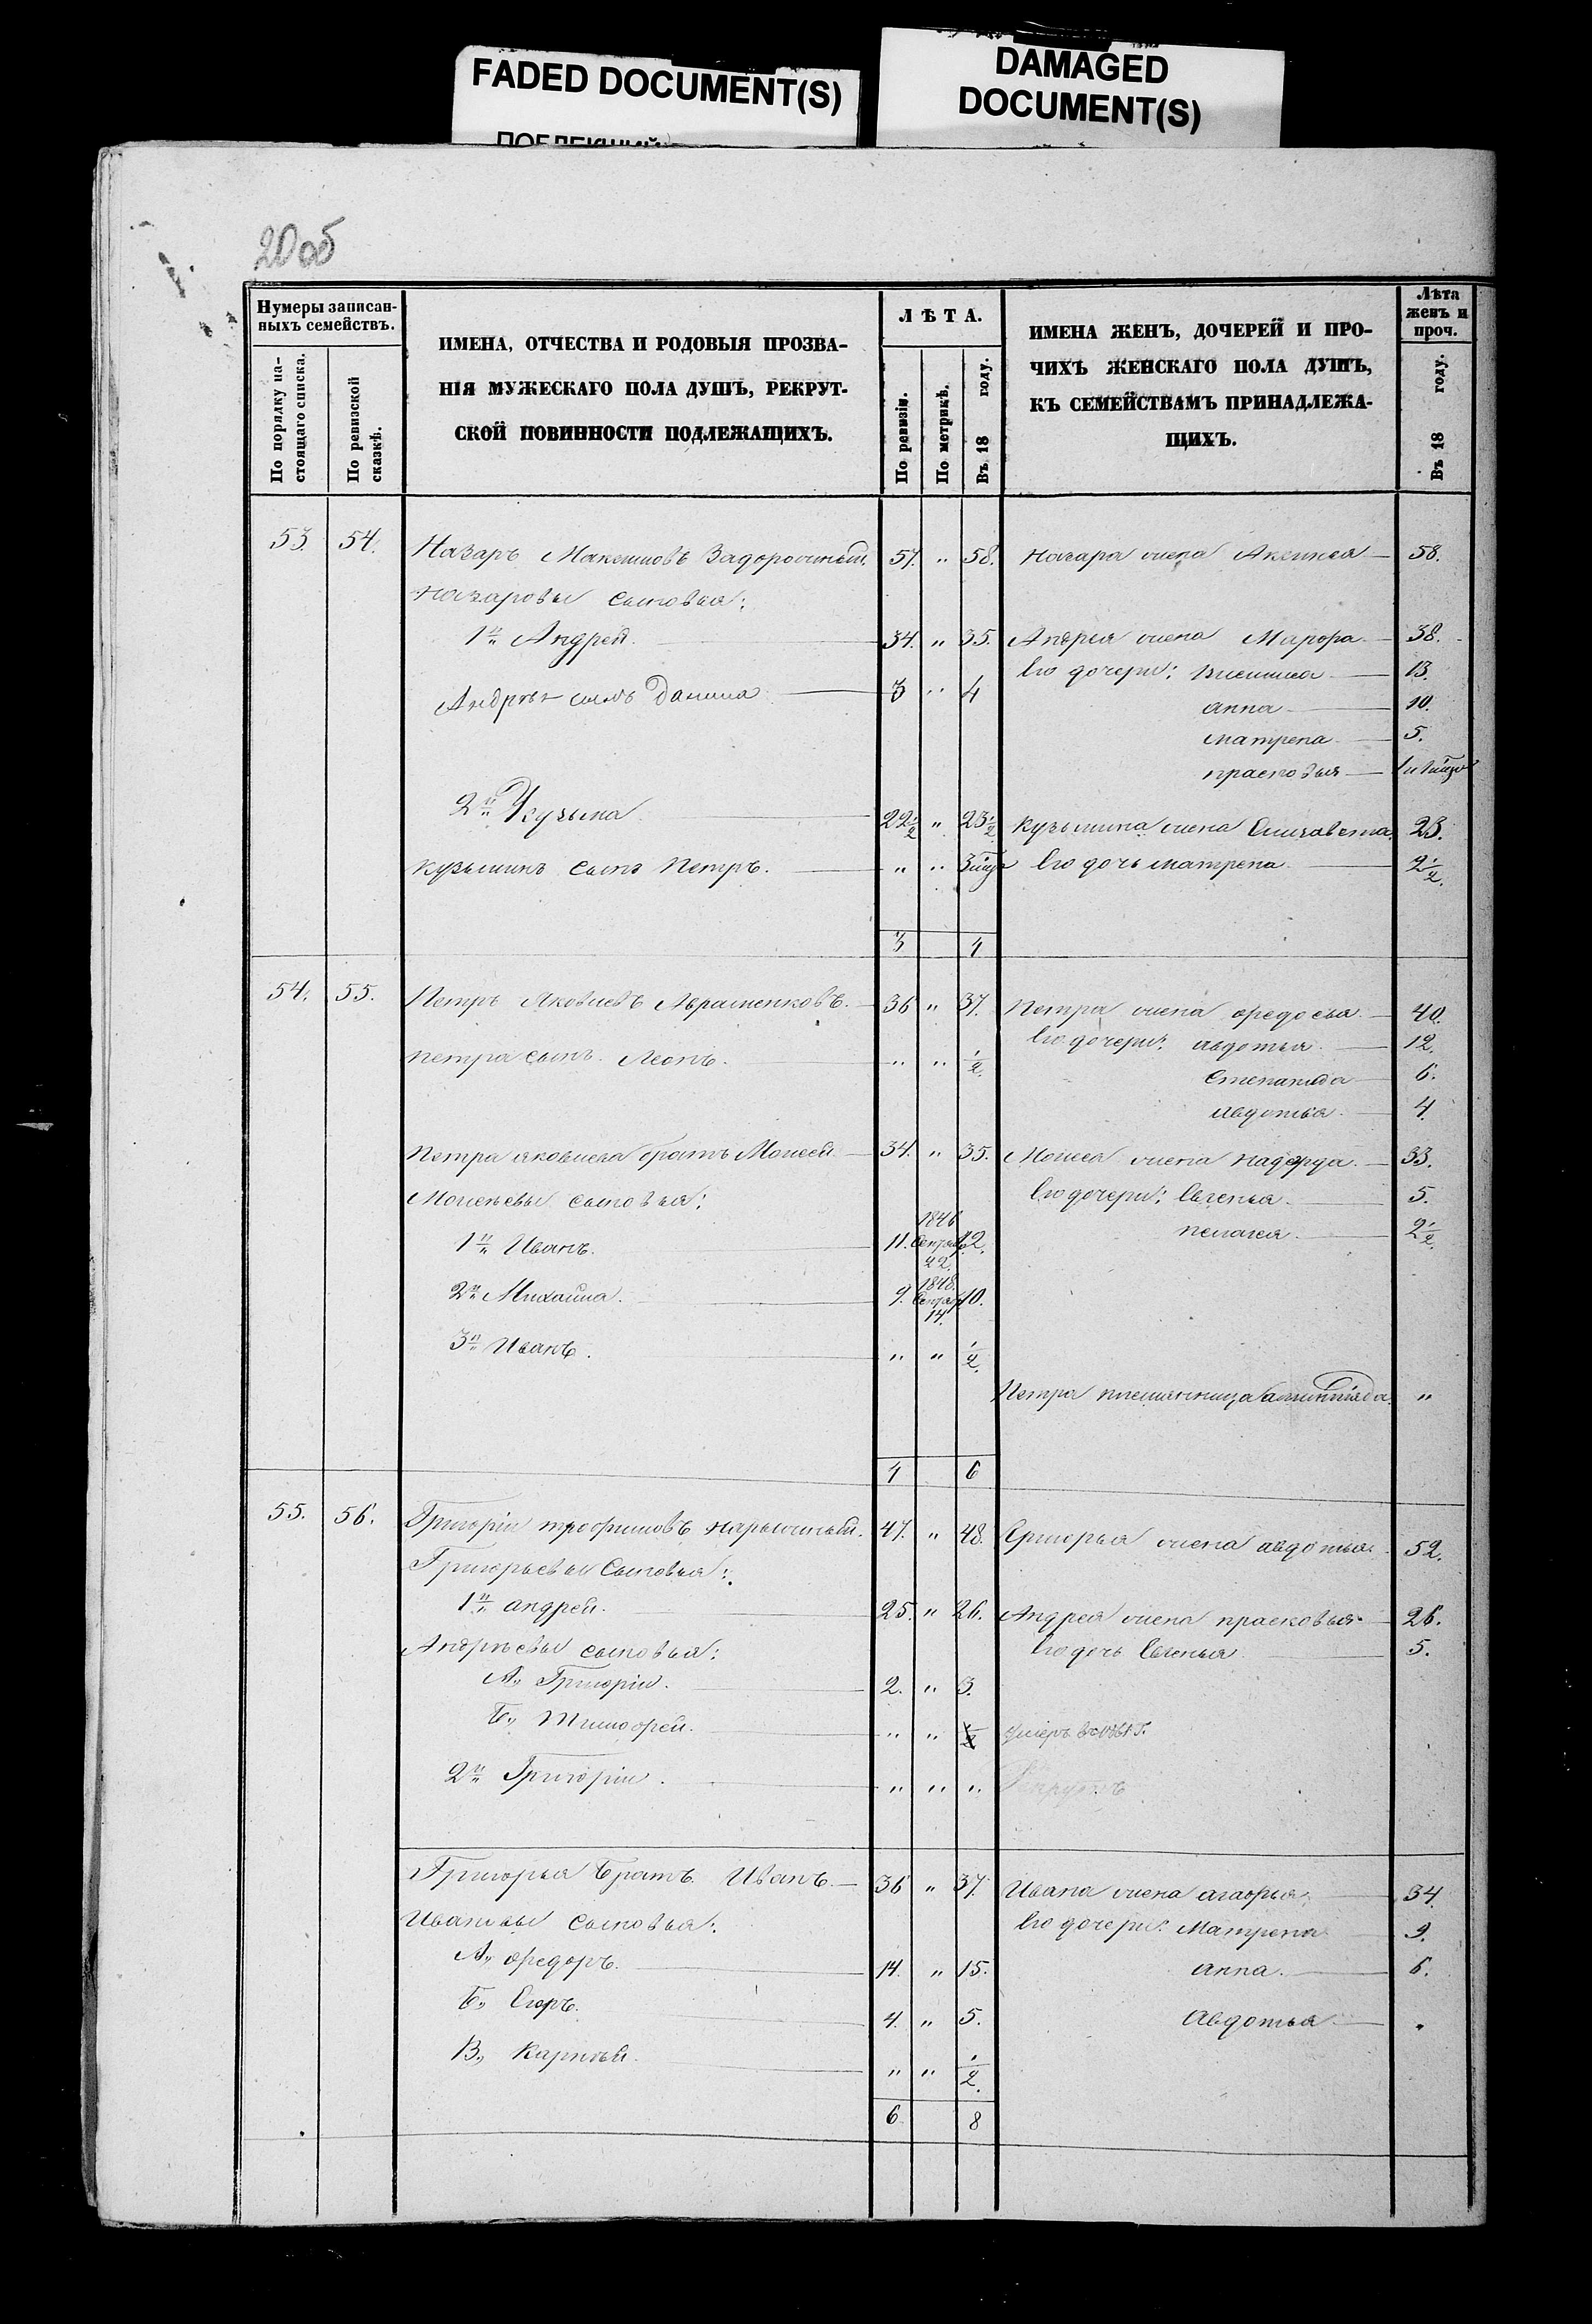 FADED DOCUMENT(S)
DAMAGED
DOCUMENT(S)
20об
Нумеры записан-
ныхъ семействъ.
По порядку на-
стоящаго списка.
По ревизской
сказкѣ.
ИМЕНА, ОТЧЕСТВА И РОДОВЫЯ ПРОЗВА-
НІЯ МУЖЕСКАГО ПОЛА ДУШЪ, РЕКРУТ-
СКОЙ ПОВИННОСТИ ПОДЛЕЖАЩИХЪ.
ЛѢТА.
По ревизіи.
По метрикѣ.
Въ 18 году.
ИМЕНА ЖЕНЪ, ДОЧЕРЕЙ И ПРО-
ЧИХЪ ЖЕНСКАГО ПОЛА ДУШЪ,
КЪ СЕМЕЙСТВАМЪ ПРИНАДЛЕЖА-
ЩИХЪ.
Лѣта
женъ и
проч.
Въ 18 году.
53. 54. Назаръ Максимовъ Задорожный. 57. " 58. Назара жена Аксинья 58.
Назаровы сыновья:
1й Андрей. 34. " 35. Андрея жена Марфа 38.
Его дочери: 13.
Андрѣя сынъ Данила 3 " 4
анна 10.
матрена 5.
прасковья
2й Кузьма 22½ " 23½ Кузьмина жена Елизавета 23.
Кузьминъ сынъ Петръ. " " Его дочь матрена 2½.
3 4
54. 55. Петръ Яковлевъ Авраменковъ. 36 " 37. Петра жена федосья 40.
Его дочери: авдотья 12.
Петра сынъ Леонъ. " " ½.
Степанида 6.
авдотья 4.
Петра яковлева братъ Моисей 34. " 35. Моисея жена надежда. 33.
Моисеевы сыновья: Его дочери: Евгенья 5.
пелагея 2½.
1й Иванъ. 11. 1846 Сентяб 22. 12.
2й Михайла. 9. 1848. Сентяб 14. 10.
3й Иванъ. " " ½.
Петра племянница "
4 6
55. 56. Григорій трофимовъ нарыжный. 47. " 48. Григорья жена авдотья 52.
Григорьевы Сыновья:
1й андрей. 25. " 26. Андрея жена прасковья 26.
Андрѣевы сыновья: Его дочь Евгенья 5.
А., Григорій. 2. " 3.
Б., Тимофей. " " ½ умеръ
2й Григорій. " " "
Григорья Братъ Иванъ. 36 " 37. Ивана жена агафья 34.
Ивановы сыновья: Его дочери: Матрена 9.
А., федоръ. 14. " 15. анна. 6.
Б., Егоръ. 4. " 5. Авдотья
В., Карпѣй. " " ½.
6 8